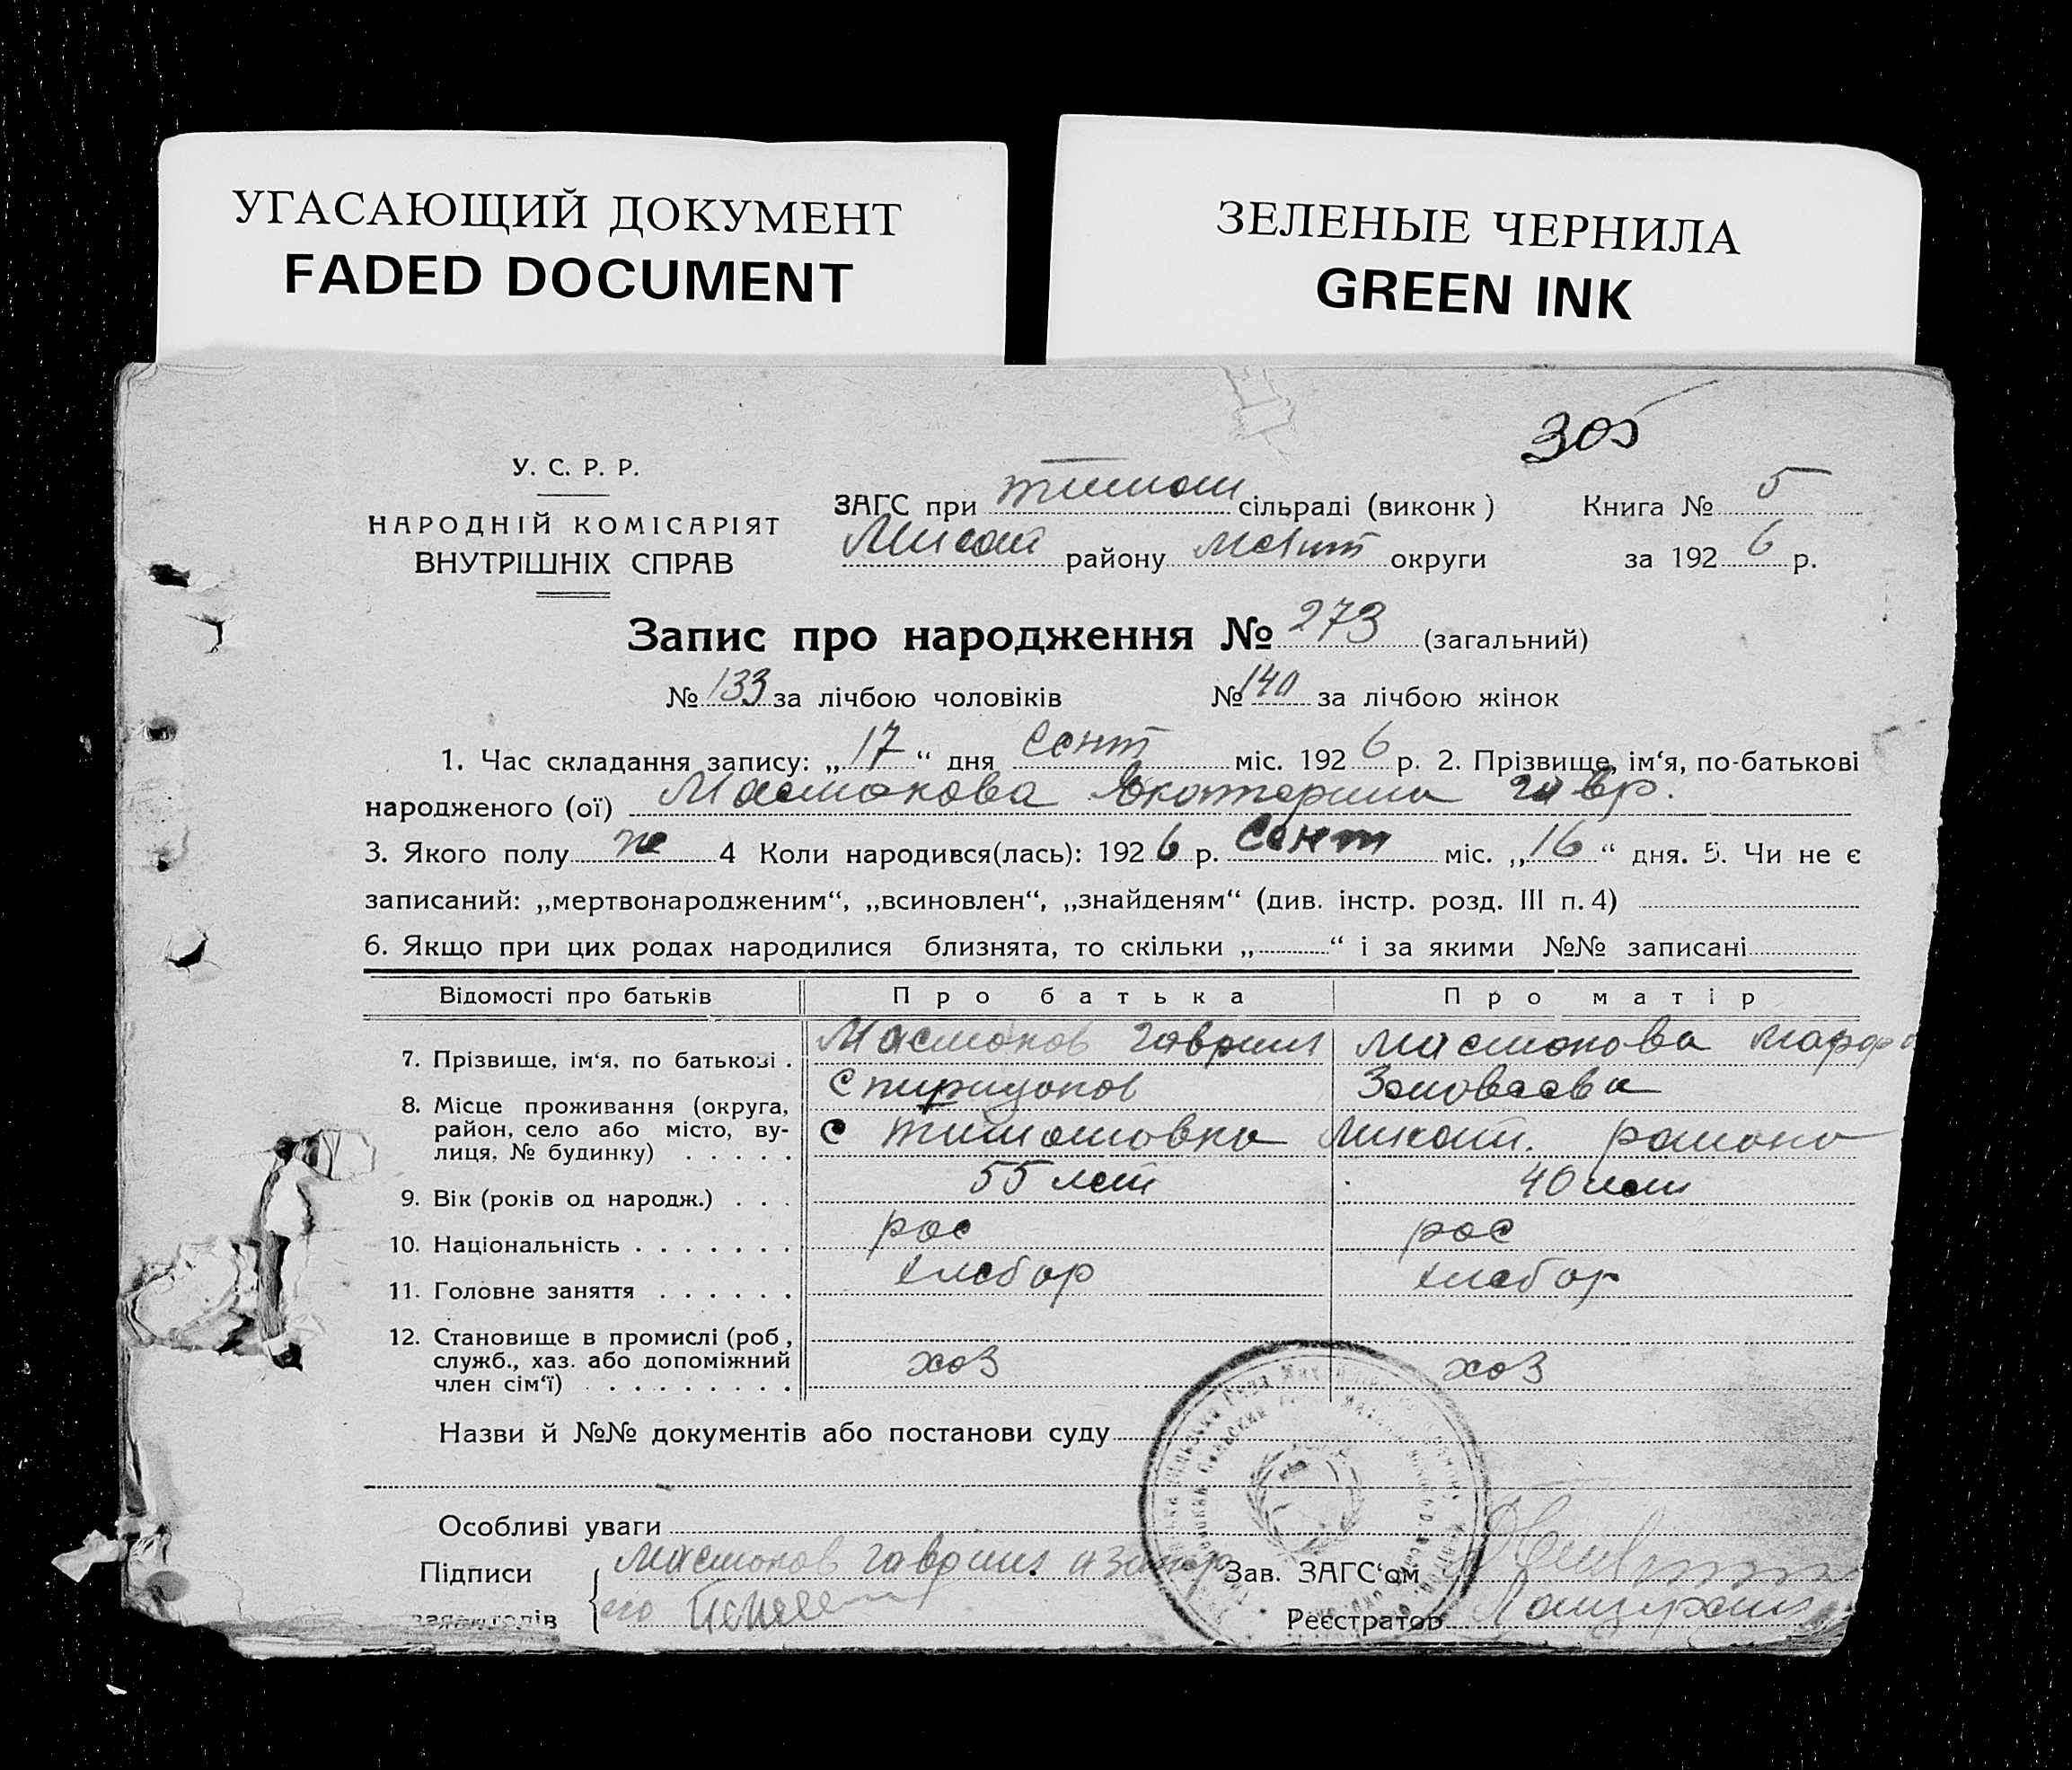 УГАСАЮЩИЙ ДОКУМЕНТ
FADED DOCUMENT
ЗЕЛЕНЫЕ ЧЕРНИЛА
GREEN INK
305
У. С. Р. Р.
НАРОДНІЙ КОМІСАРІЯТ
ВНУТРІШНІХ СПРАВ
ЗАГС при тимош сільраді (виконк)
району округи
Книга № 5
за 192 6 р.
Запис про народження № 273 (загальний)
№ 133 за лічбою чоловіків № 140 за лічбою жінок
1. Час складання запису: „ 17 “ дня сент міс. 192 6 р. 2. Прізвище, ім‘я, по-батькові
народженого (ої) Масмокова Екатерина гавр.
3. Якого полу ж 4 Коли народився(лась): 192 6 р. сент міс. „ 16 “ дня. 5. Чи не є
записаний: „мертвонародженим“, „всиновлен“, „знайденям“ (див. інстр. розд. III п. 4)
6. Якщо при цих родах народилися близнята, то скільки „ “ і за якими №№ записані
Відомості про батьків Про батька Про матір
7. Прізвище, ім‘я, по батькові . Масмоков гаврил Спиридонов
Масмокова Марфа
8. Місце проживання (округа,
район, село або місто, ву-
лиця, № будинку) . . . . . с тимошовка района
9. Вік (років од народж.) . . . 55 лет 40 лет
10. Національність . . . . . . . рос рос
11. Головне заняття . . . . . . хлебор хлебор
12. Становище в промислі (роб,
служб., хаз. або допоміжний
член сім‘ї) . . . . . . . . . хоз хоз
Назви й №№ документів або постанови суду
Особливі уваги
Підписи Масмоков гаврил
Зав. ЗАГС‘ом
Реєстратор